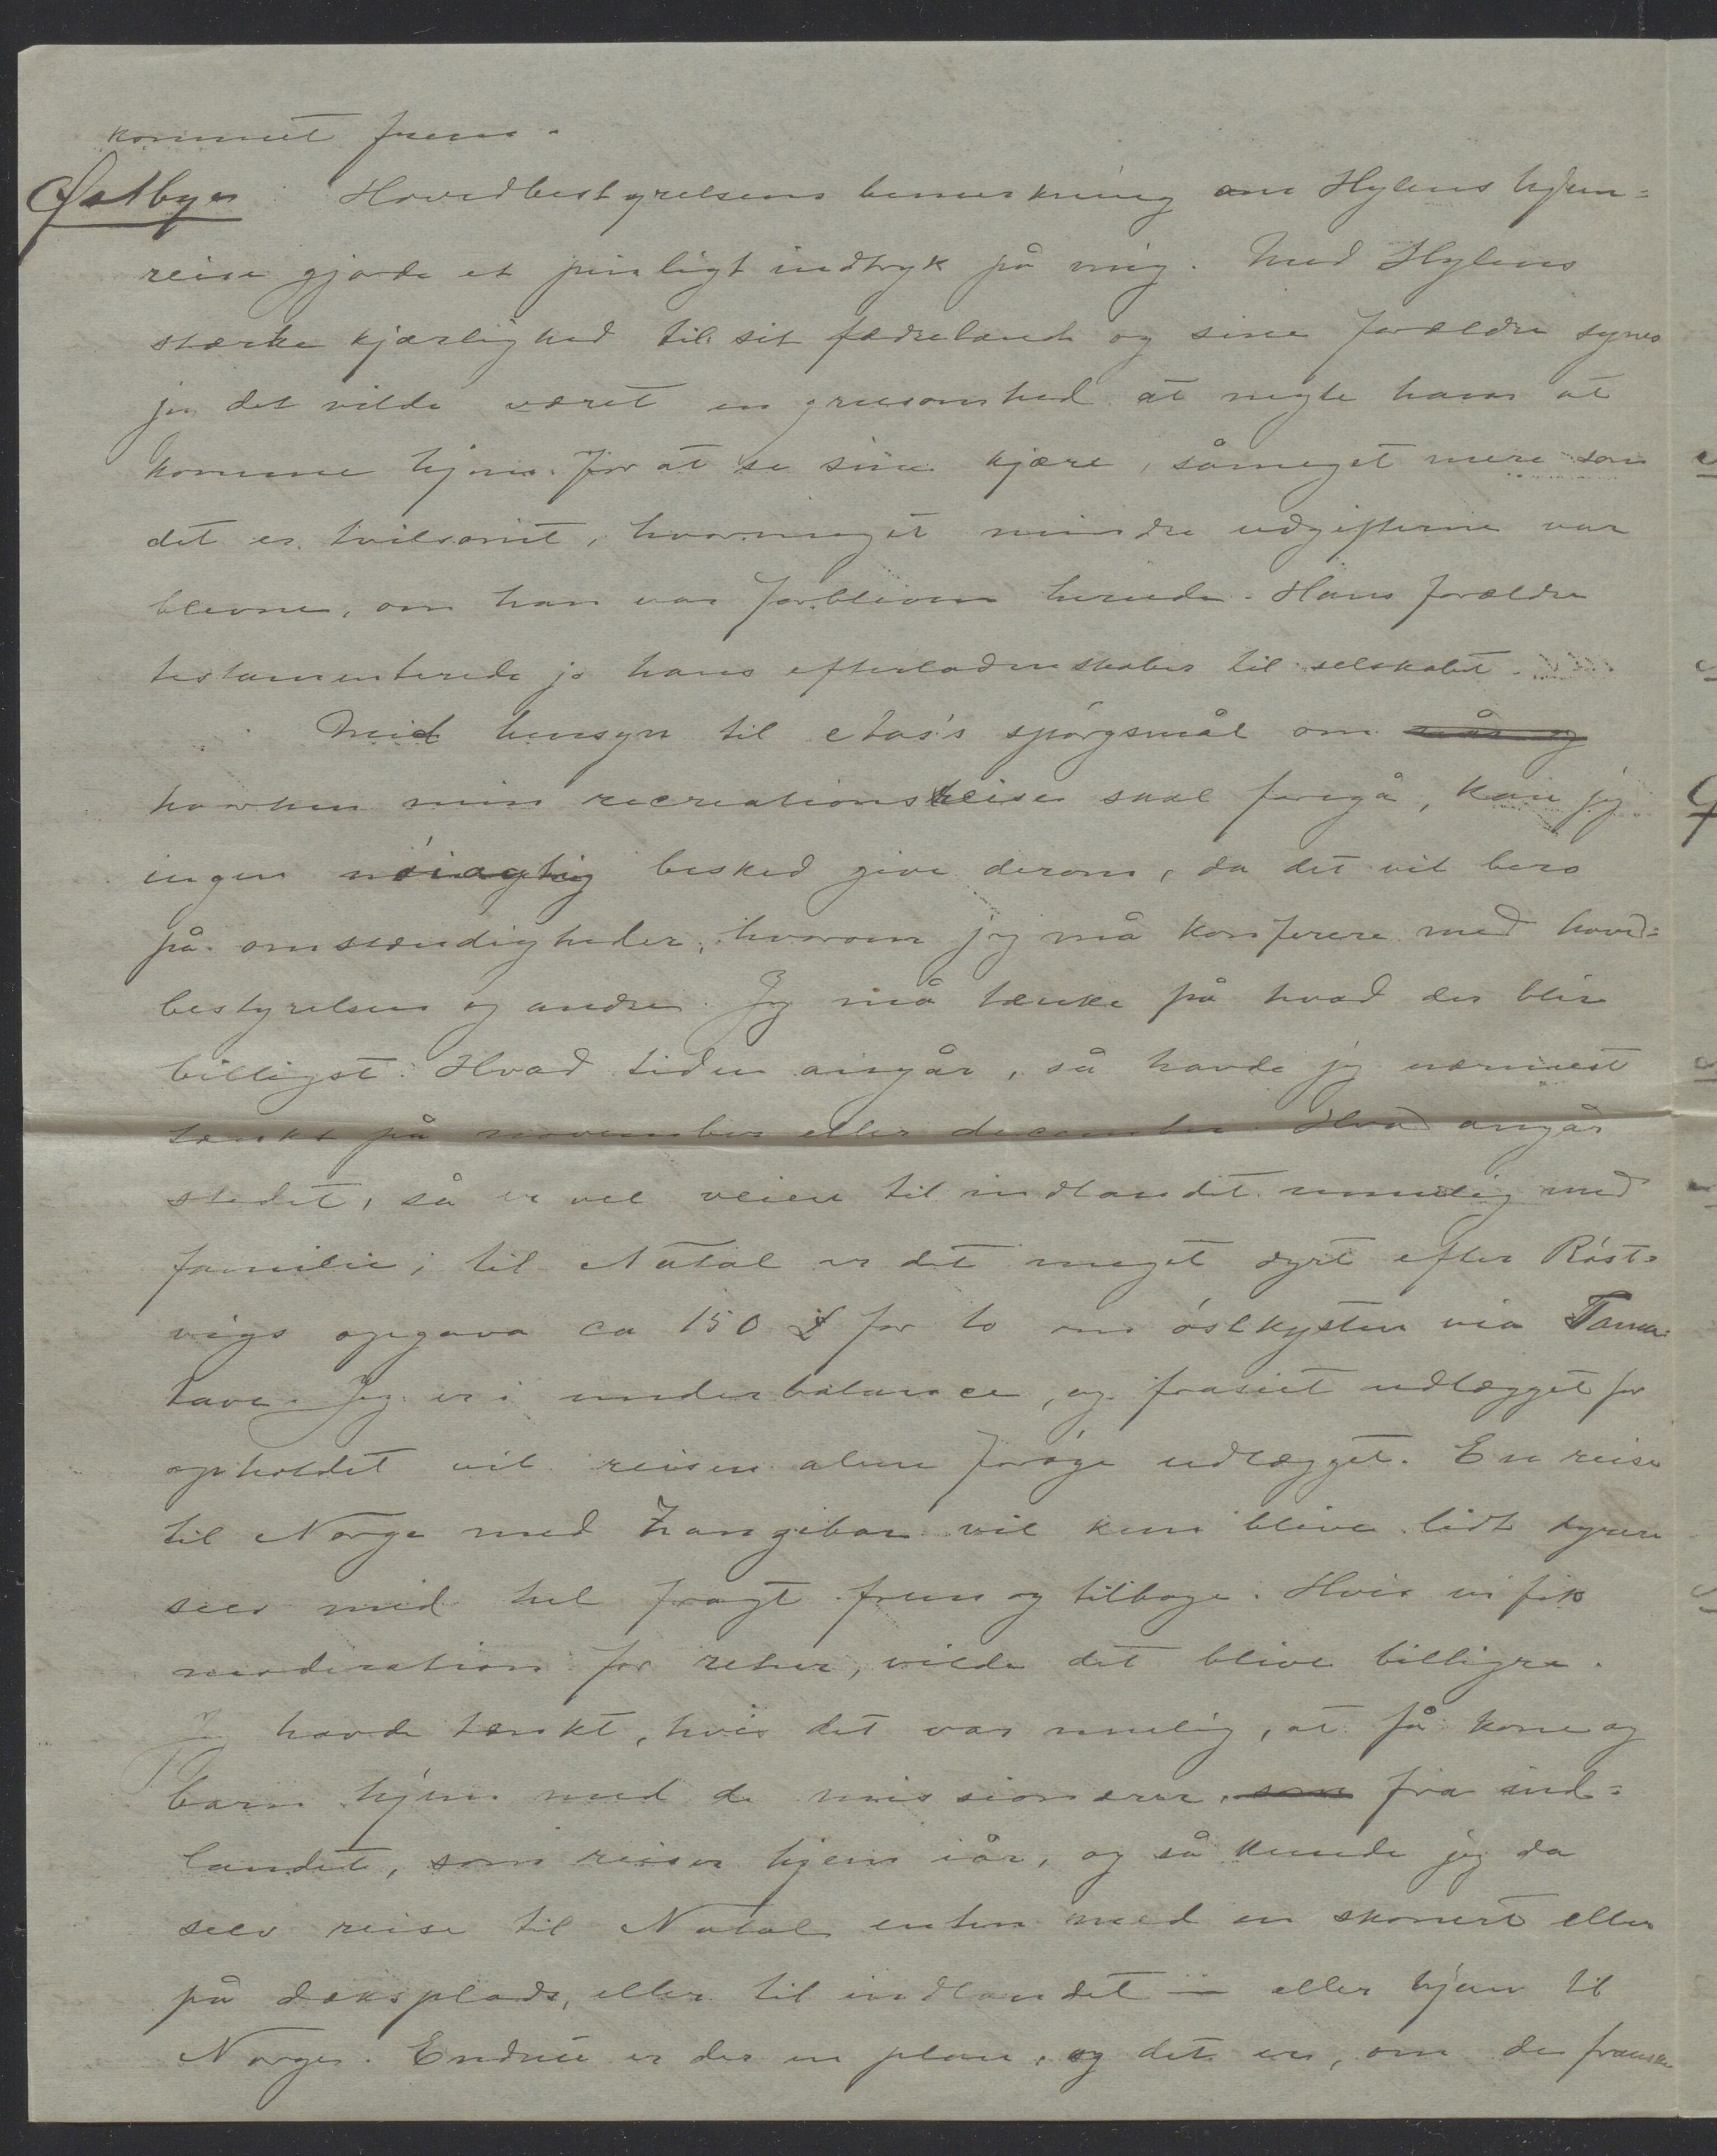 kommet frem.
Østbyes Hovedbestyrelsens bemerkning om Hylens hjem=
reise gjorde et pinligt indtryk på mig. Med Hylens
stærke kjærlighed til sit fædreland og sine forældre synes
jeg det vilde været en grusomhed at negte ham at
komme hjem for at se sine kjære, såmeget mere som
det er tvilsomt, hvormeget mindre udgifterne var
blevne, om han var forbleven hernede. Hans forældre
testamenterede jo hans efterladenskaber til selskabet.
Med hensyn til etas's spørgsmål om når og
hvorhen min recreationsreise skal foregå, kan jeg
ingen nöiagtig besked give derom, da det vil bero
på omstændigheder, hvorom jeg må konferere med hoved=
bestyrelsen og andre. Jeg må tænke på hvad der blir
billigst. Hvad tiden angår, så havde jeg nærmest
tænkt på november eller december. Hvad angår
stedet, så er vel veien til indlandet umulig med
familie; til Natal er det meget dyrt efter Röst=
vigs opgave ca 150 £ for to om östkysten via Tama
tave. Jeg er i underbalance, og fraseet udlægget for
opholdet vil reisen alene foröge udlægget. En reise
til Norge med Zangibar vil kun blive lidt dyrere
selv med hel fragt frem og tilbage. Hvis vi fik
moderation for retur, vilde det blive billigre.
Jeg havde tænkt, hvis det var mulig, at få kone og
barn hjem med de missionærer, som fra ind=
landet, som reiser hjem iår, og så kunde jeg da
selv reise til Natal enten med en skonnert eller
på dæksplads, eller til indlandet – eller hjem til
Norge. Endnu er der en plan, og det er, om de franske